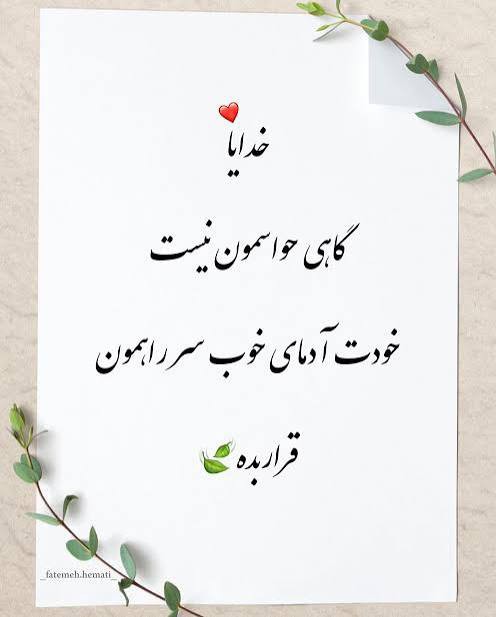 خدایا
گاهی حواسمون نیست
خودت آدمای خوب سر راهمون
قرار بده
_fatemeh.hemati_